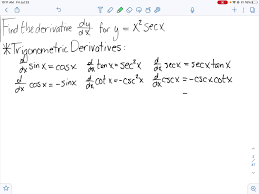 Find the derivative dy/dx for y = x² secx
*Trigonometric Derivatives:
d/dx sinx = cosx d/dx tanx = sec²x d/dx secx = secxtanx
d/dx cosx = -sinx d/dx cotx = -csc²x d/dx cscx = -cscxcotx